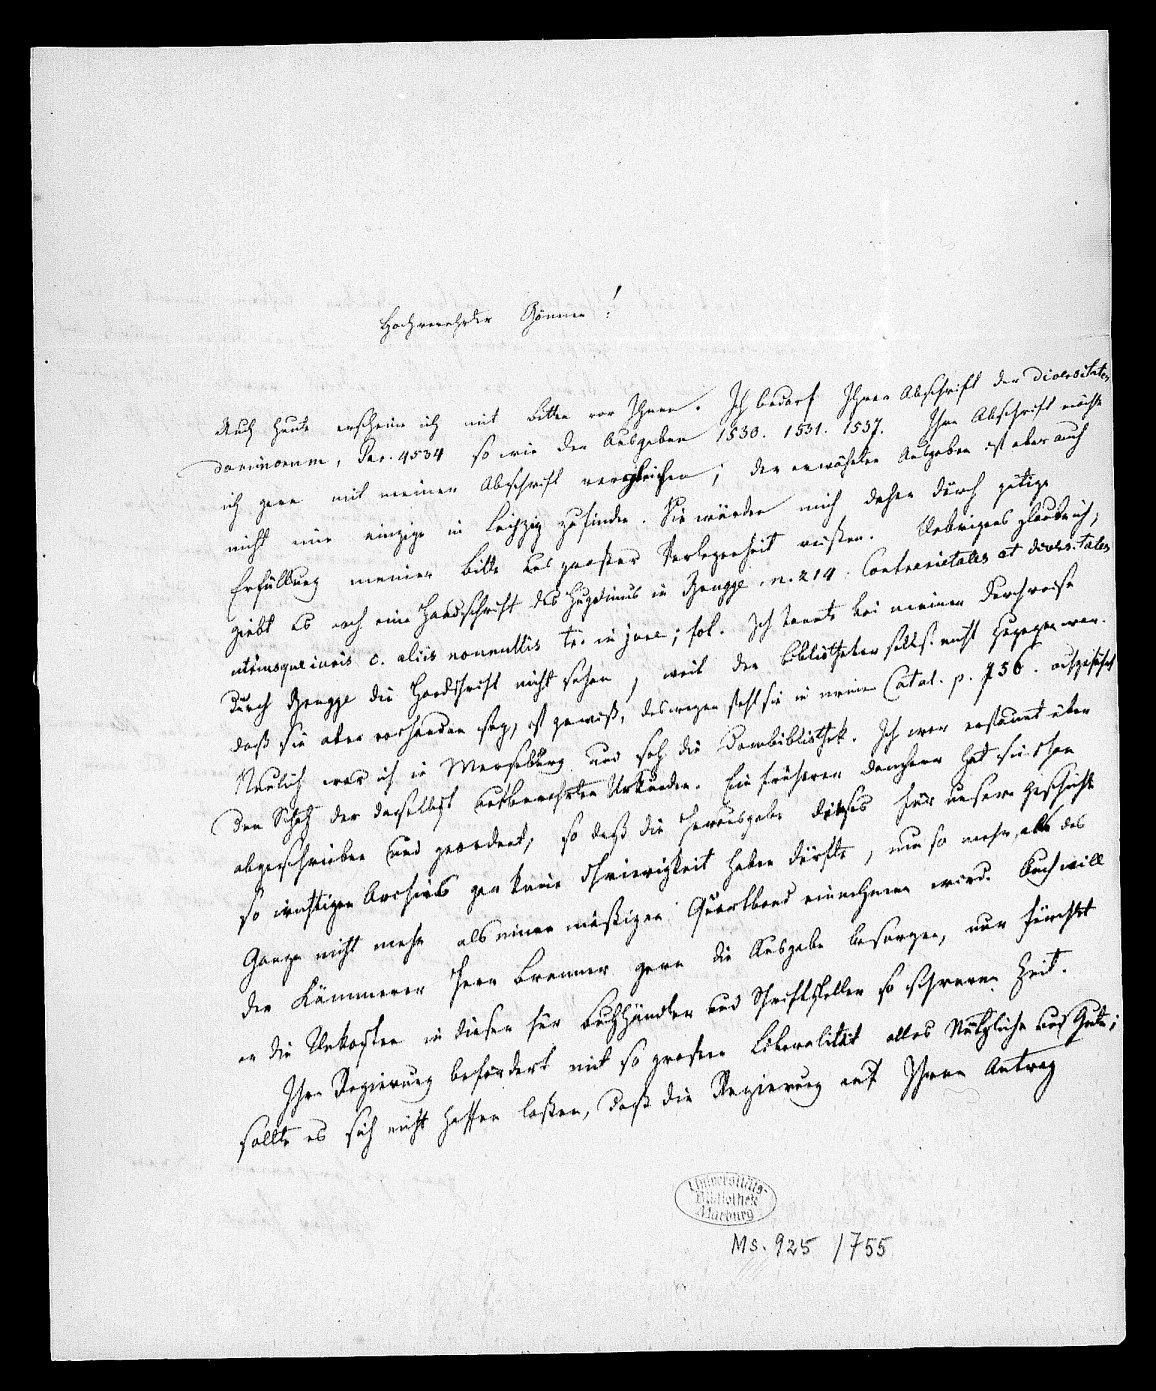 Hochverehrder Gönner!
Auch heute erscheine ich mit Bitten vor Ihnen. Ich bedarf Ihrer Abschrift der Diversitates
dominorum, Par. 4534 so wie der Ausgaben 1530. 1531. 1537. Ihre Abschrift möchte
ich gern mit meiner Abschrift vergleichen; der erwähnten Ausgaben ist aber auch
nicht eine einzige in Leipzig zu finden. Sie würden mich daher durch gütige
Erfüllung meiner Bitte aus großer Verlegenheit reißen. Uebrigens glaube ich,
giebt es noch eine Handschrift des Hugolinus in Brugge. n. 214. Contrarietates et diversitates
utriusque iuris c. aliis nonnullis tr. in jure; fol. Ich konnte bei meiner Durchreise
durch Brugge die Handschrift nicht sehen, weil der Bibliothekar selbst nicht zugegen war.
daß sie aber vorhanden sey, ist gewiß, deswegen steht sie in meinem Catal. p. 756. aufgeführt
Neulich war ich in Merseburg und sah die Dombibliothek. Ich war erstaunt über
den Schatz der daselbst aufbewahrten Urkunden. Ein früherer Domherr hat sie schon
abgeschrieben und geordnet, so daß die Herausgabe dieses für unsere Geschichte
so wichtigen Archives gar keine Schwierigkeit haben dürfte, um so mehr, als das
Ganze nicht mehr als einen mäßigen Quartband einnehmen wird. Auch will
der Kämmerer Herr Brenner gern die Ausgabe besorgen, nur fürchtet
er die Unkosten in dieser für Buchhändler und Schriftsteller so schweren Zeit.
Ihre Regierung befördert mit so großer Liberalität alles Nützliche und Gute;
sollte es sich nicht hoffen laßen, daß die Regierung auf Ihren Antrag
Universitäts-
Bibliothek
Marburg
Ms. 925 / 755